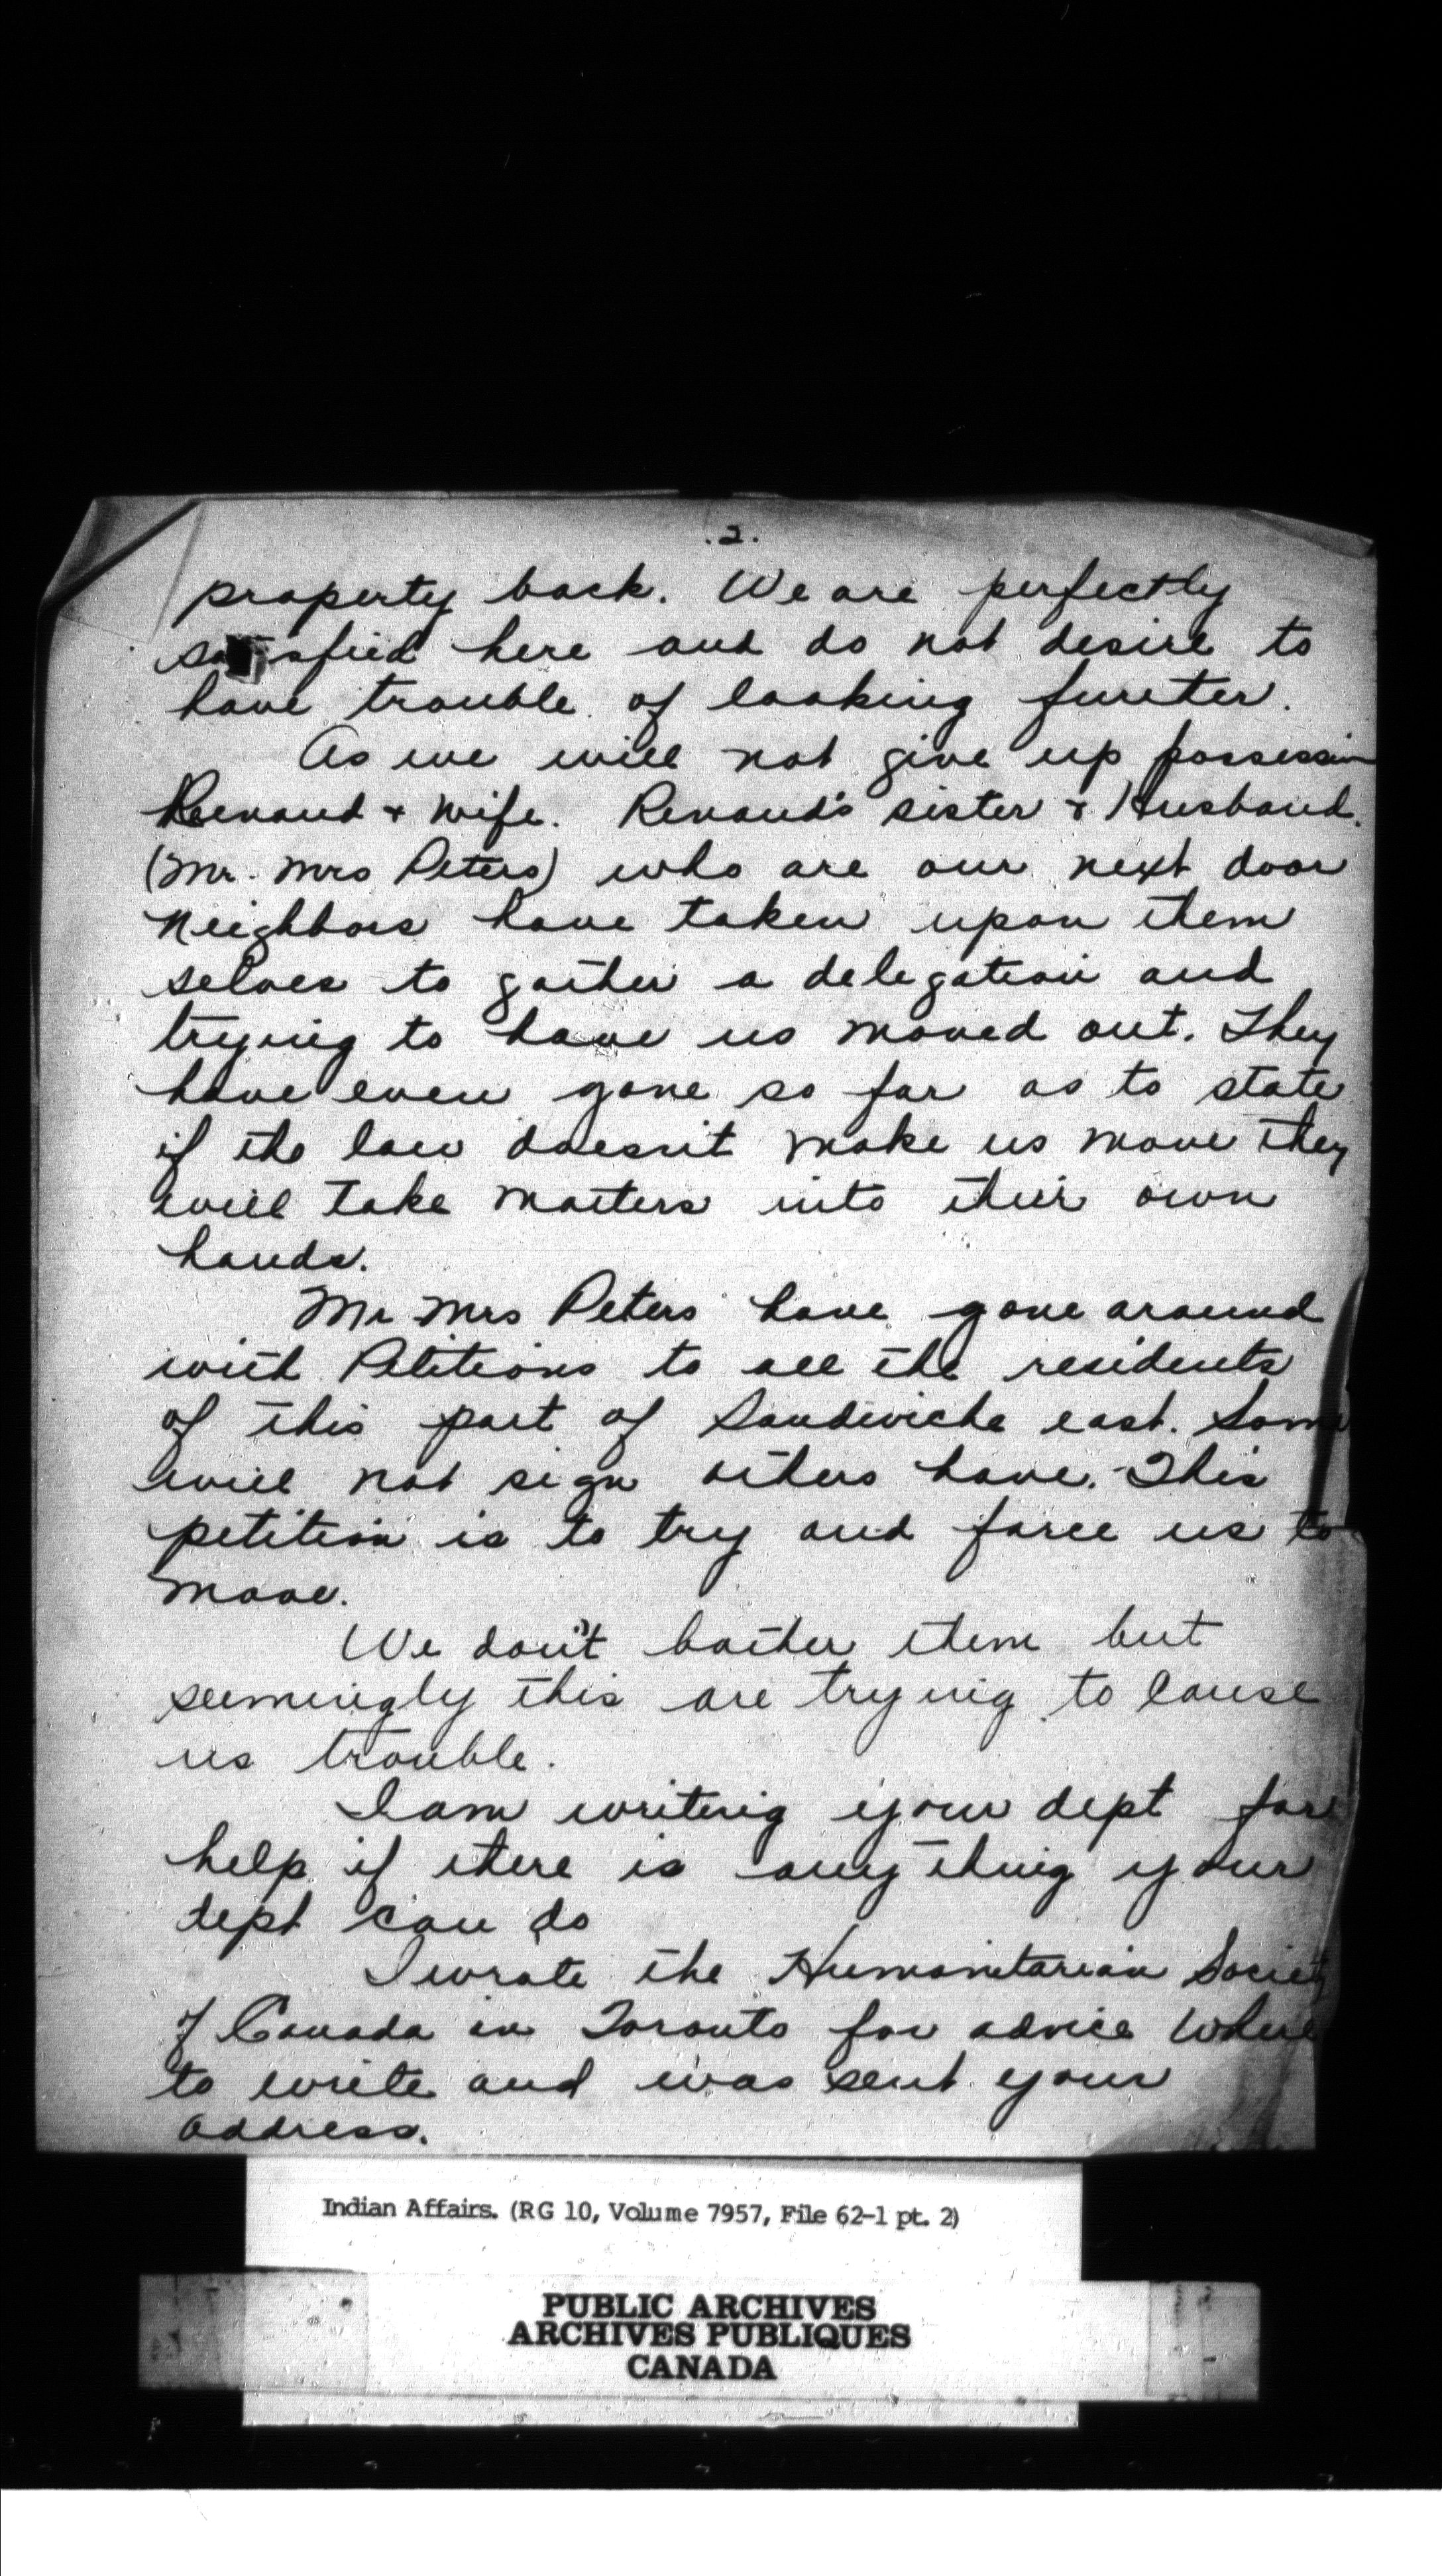 .2.
property back. We are perfectly
satisfied here and do not desire to
have trouble of looking fureter.
As we will not give up possession
Renaud + wife. Renauds sister + Husband.
(Mr. Mrs Peters) who are our next door
neighbors have taken upon them
selves to gather a delegation and
trying to have us moved out. They
have even gone so far as to state
if the law doesn't make us move they
will take matters into their own
hands.
Mr Mrs Peters have gone around
with Petitions to all the residents
of this part of Sandwiche east. Some
will not sign others have. This
petition is to try and force us to
move.
We don't bother them but
seemingly this are trying to cause
us trouble.
I am writing your dept for
help if there is any thing your
dept can do
I wrote the Humanitarian Society
of Canada in Toronto for advice where
to write and was sent your
address.
Indian Affairs. (RG 10, Volume 7957, File 62-1 pt. 2)
PUBLIC ARCHIVES
ARCHIVES PUBLIQUES
CANADA